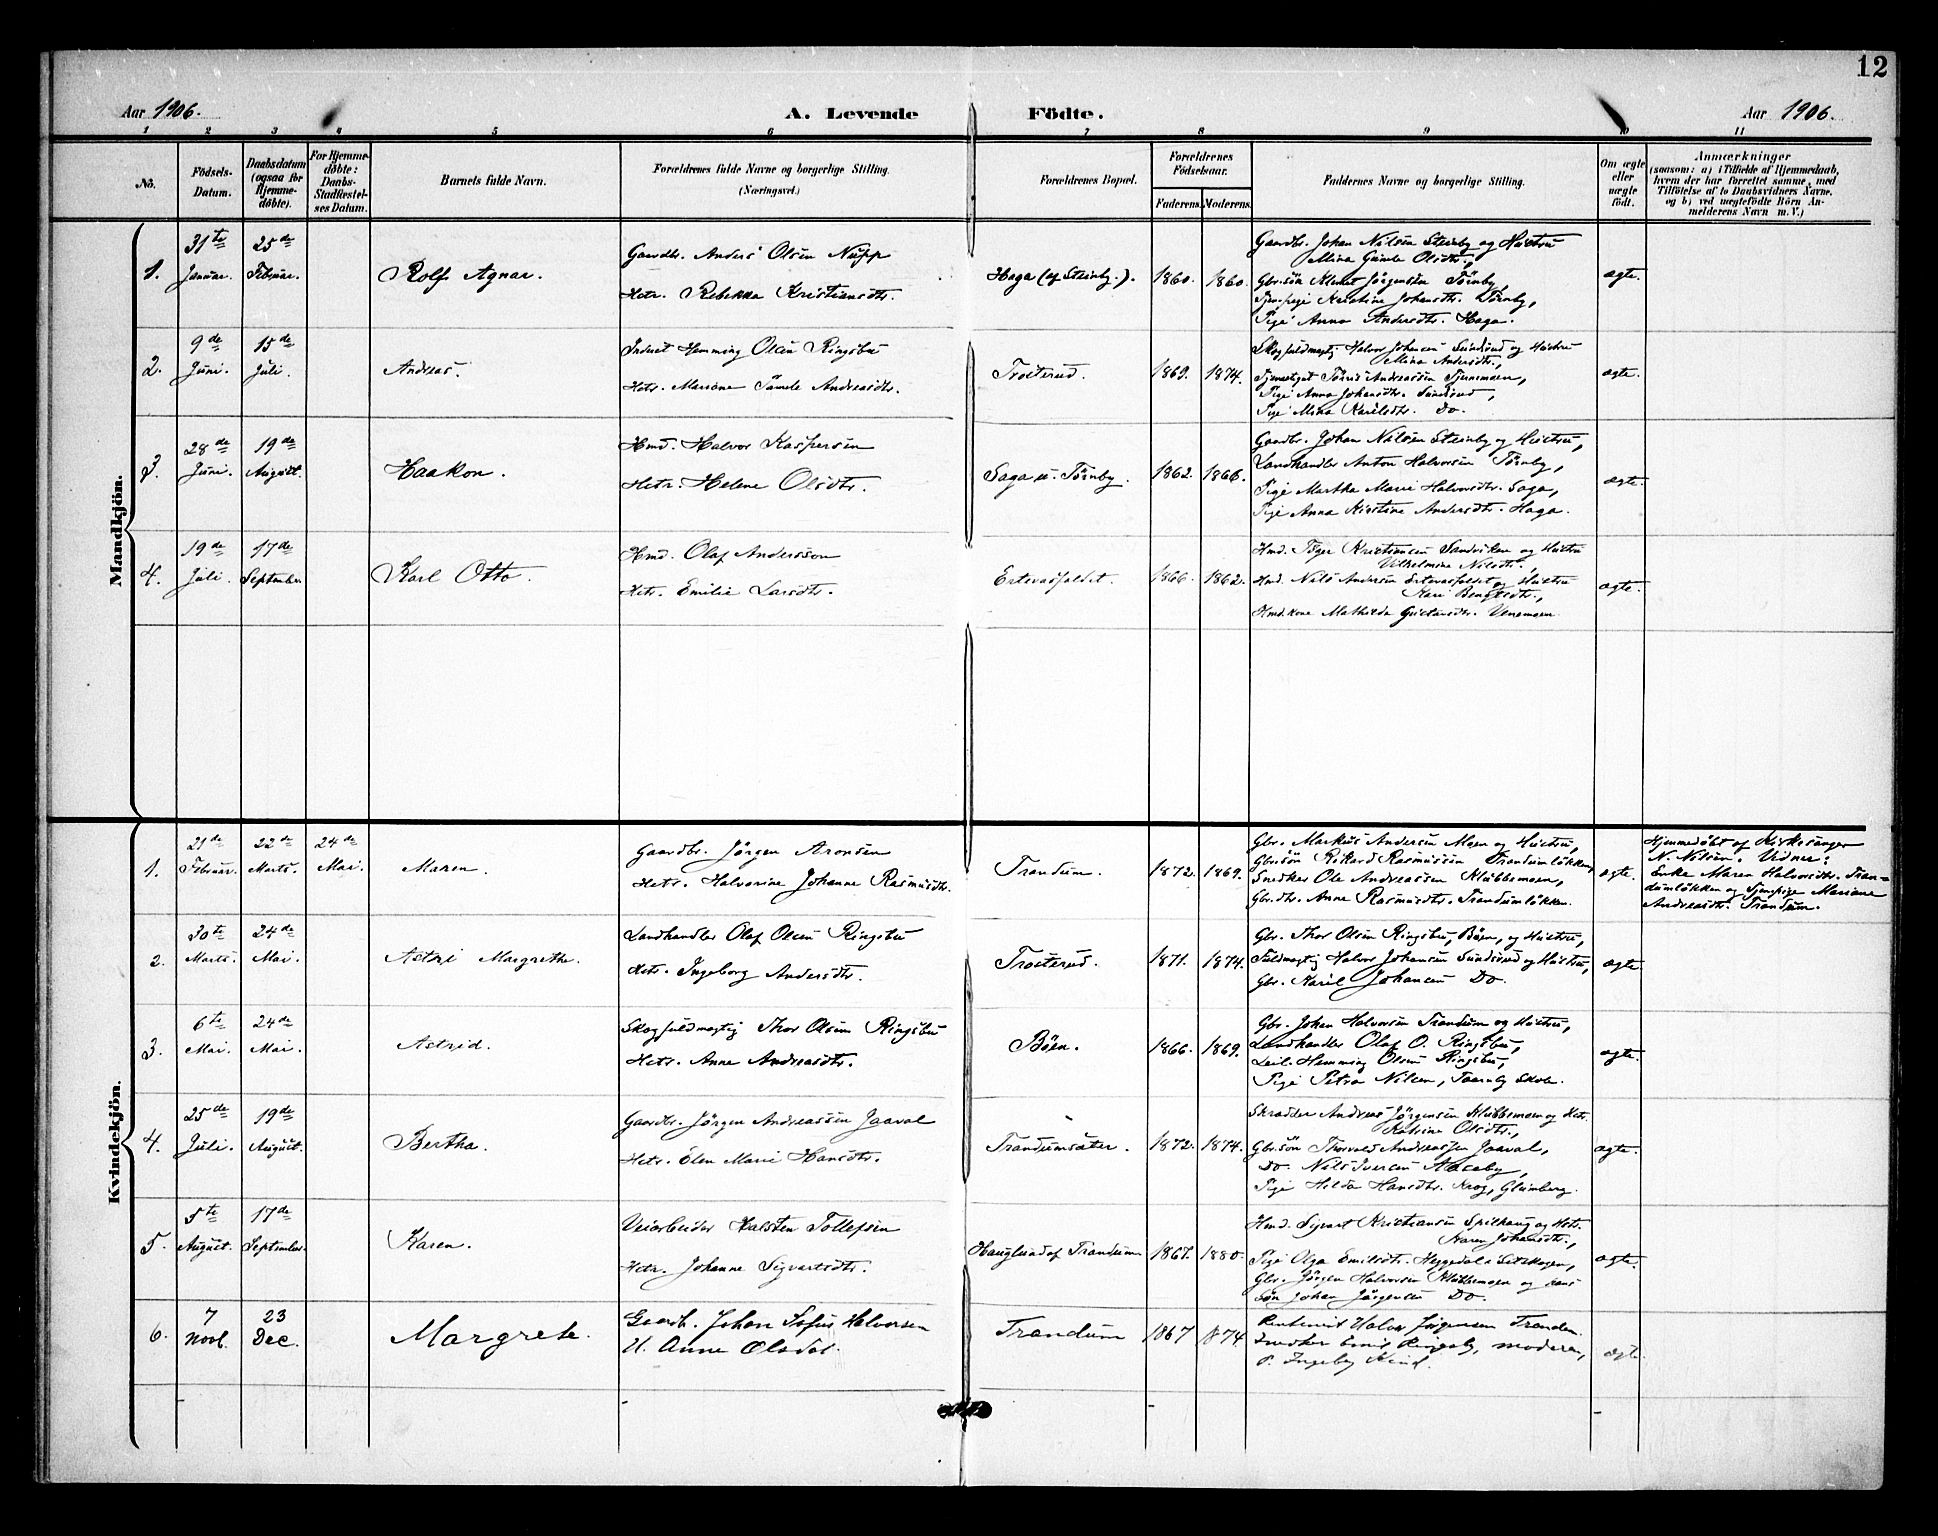 12
Aar 1906.
A. Levende Födte.
Aar 1906.
1 2 3 4 5 6 7 8 9 10 11
No.
Födsels-
Datum.
Daabsdatum
(ogsaa for
Hjemme-
döbte).
For Hjemme-
döbte:
Daabs-
Stadfæstel-
ses Datum.
Barnets fulde Navn.
Forældrenes fulde Navne og borgerlige Stilling.
(Næringsvei.)
Forældrenes Bopæl.
Forældrenes
Födselsaar.
Faderens. Moderens.
Faddernes Navne og borgerlige Stilling.
Om ægte
eller
uægte
födt.
Anmærkninger
(saasom: a) i Tilfælde af Hjemmedaab,
hvem der har forrettet samme, med
Tilföielse af to Daabsvidners Navne,
og b) ved uægtefödte Börn An-
melderens Navn m. V.)
Mandkjön.
1.
31te
Januar.
25de
Februar.
Rolf Agnar.
Gaardbr. Anders Olsen Nupp
Hstr. Rebekka Kristiansdtr.
Haga (af Steinby.).
1860. 1860.
Gaardbr. Johan Nilsen Steinby og Hustru
Mina Gunde Olsdtr.,
Gbr.sön Klemet Jörgensen Törnby,
Tjen.pige Kristine Johansdtr. Törnby,
Pige Anna Andersdtr. Haga.
ægte.
2.
9de
Juni.
15de
Juli.
Andreas.
Inderst Hemming Olsen Ringsbu
Hstr. Mariane Andreasdtr.
Trosterud.
1869. 1874.
Skogfuldmægtig Halvor Johansen Sundsrud og Hustru
Mina Andersdtr.,
Andreassen Tjernmoen,
Pige Anna Johansdtr. Sundsrud,
Pige Mina Karlsdtr. Do.
ægte.
3.
28de
Juni.
19de
August.
Haakon.
Hmd. Halvor Kaspersen
Hstr. Helene Olsdtr.
Saga u. Törnby.
1862. 1866.
Gaardbr. Johan Nilsen Steinby og Hustru,
Landhandler Anton Halvorsen Törnby,
Pige Martha Marie Halvorsdtr. Saga,
Pige Anna Kirstine Andersdtr. Haga.
ægte.
4.
19de
Juli.
17de
September
Karl Otto.
Hmd. Olaf Andersson
Hstr. Emilie Larsdtr.
Ertevasfaldet.
1866. 1862.
Hmd. Kristiansen Sandviken og Hustru
Vilhelmine Nilsdtr.,
Hmd. Nils Andersen Ertevasfaldet og Hustru
Kari Bengtsdtr.,
Hmd.kone Mathilda Gustavsdtr. Venemoen
ægte.
Kvindekjön.
1.
21de
Februar.
22de
Marts.
24de
Mai.
Maren.
Gaardbr. Jörgen Aronsen
Hstr. Halvorine Johanne Rasmusdtr.
Trandum.
1872. 1869.
Gbr. Markus Andersen Moen og Hustru,
Gbr.sön Rikard Rasmussen Trandumlökken,
Snedker Ole Andreassen Klubbemoen,
Gbr.dtr. Anne Rasmusdtr. Trandumlökken.
ægte.
Hjemmedöbt af Kirkesanger
N. Nilsen. Vidner:
Enke Maren Halvorsdtr. Tran-
dumlökken og Tjenpige Mariane
Andreasdtr. Trandum.
2.
30te
Marts.
24de
Mai.
Astri Margrethe.
Landhandler Olaf Olsen Ringsbu
Hstr. Ingeborg Andersdtr.
Trosterud.
1871. 1874.
Gbr. Thor Olsen Ringsbu, Böen, og Hustru,
Fuldmægtig Halvor Johansen Sundsrud og Hustru,
Gbr. Karel Johansen Do.
ægte.
3.
6te
Mai.
24de
Mai.
Astrid.
Skogfuldmægtig Thor Olsen Ringsbu
Hstr. Anne Andreasdtr.
Böen.
1866. 1869.
Gbr. Johan Halvorsen Trandum og Hustru,
Landhandler Olaf O. Ringsbu,
Leil. Hemming Olsen Ringsbu,
Pige Petra Nilsen, Taarnby Skole.
ægte.
4.
25de
Juli.
19de
August.
Bertha.
Gaardbr. Jörgen Andreassen Jaaval
Hstr. Elen Marie Hansdtr.
Trandumsæter.
1872. 1874.
Skrædder Andreas Jörgensen Klubbemoen og Hstr.
Katrine Olsdtr.,
Gbr.sön Thorvald Andreassen Jaaval,
Do. Nils Iversen Aaseby,
Pige Hilda Hansdtr. Krog, Glimberg.
ægte.
5.
5te
August.
17de
September.
Karen.
Veiarbeider Karsten Tollefsen
Hstr. Johanne Sigvartsdtr.
Haugland af Trandum
1867. 1880.
Hmd. Sigvart Kristiansen Spilhaug og Hstr.
Karen Johansdtr.,
Pige Olga Emilsdtr. Heggedal i Setskogen,
Gbr. Jörgen Halvorsen Klubbemoen og hans
Sön Johan Jörgensen Do.
ægte.
6.
7
Novb.
23
Dec.
Margrete.
Gaardb. Johan Sofus Halvorsen
H. Anne Olsdat.
Trandum
1867 1874
Halvor Jörgensen Tranden.
Snedker Emil Ringsby, moderen,
P. Ingeborg Kind.
ægte.